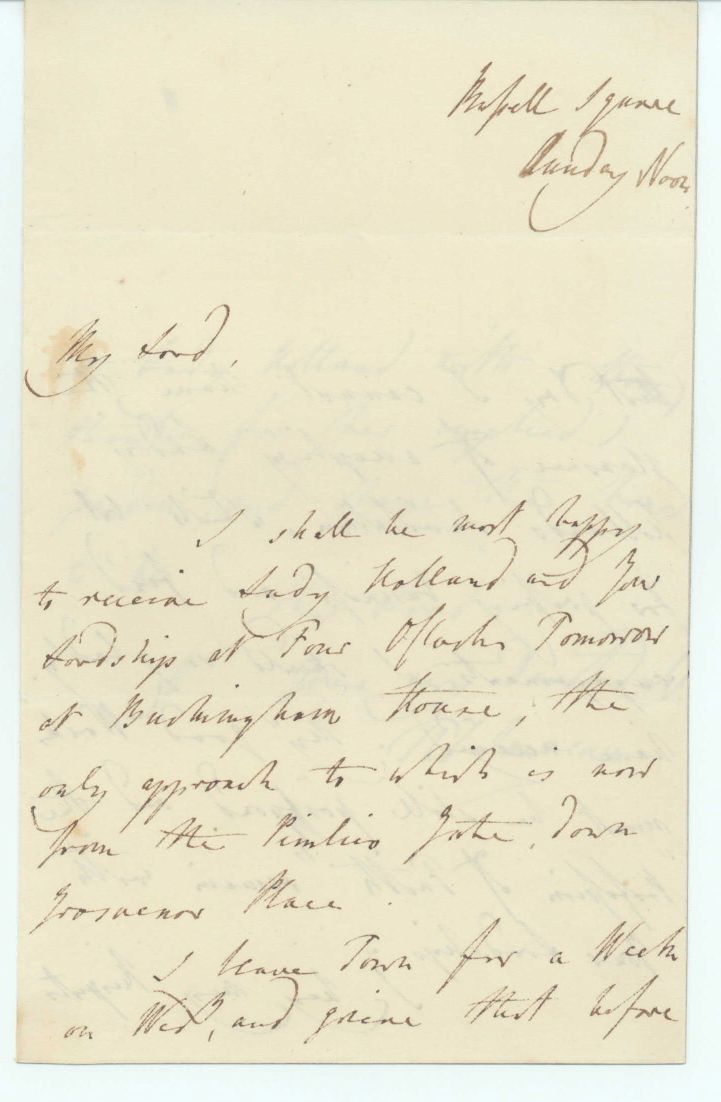 Russell Square
Sunday Noon
My Lord,
I shall be most happy
to receive Lady Holland and Your
Lordship at Four O'Clock Tomorrow
at Buckingham House, the
only approach to which is now
from the Pimlico Gate, down
Grosvenor Place.
I leave Town for a Week
on Wed?, and grieve that before